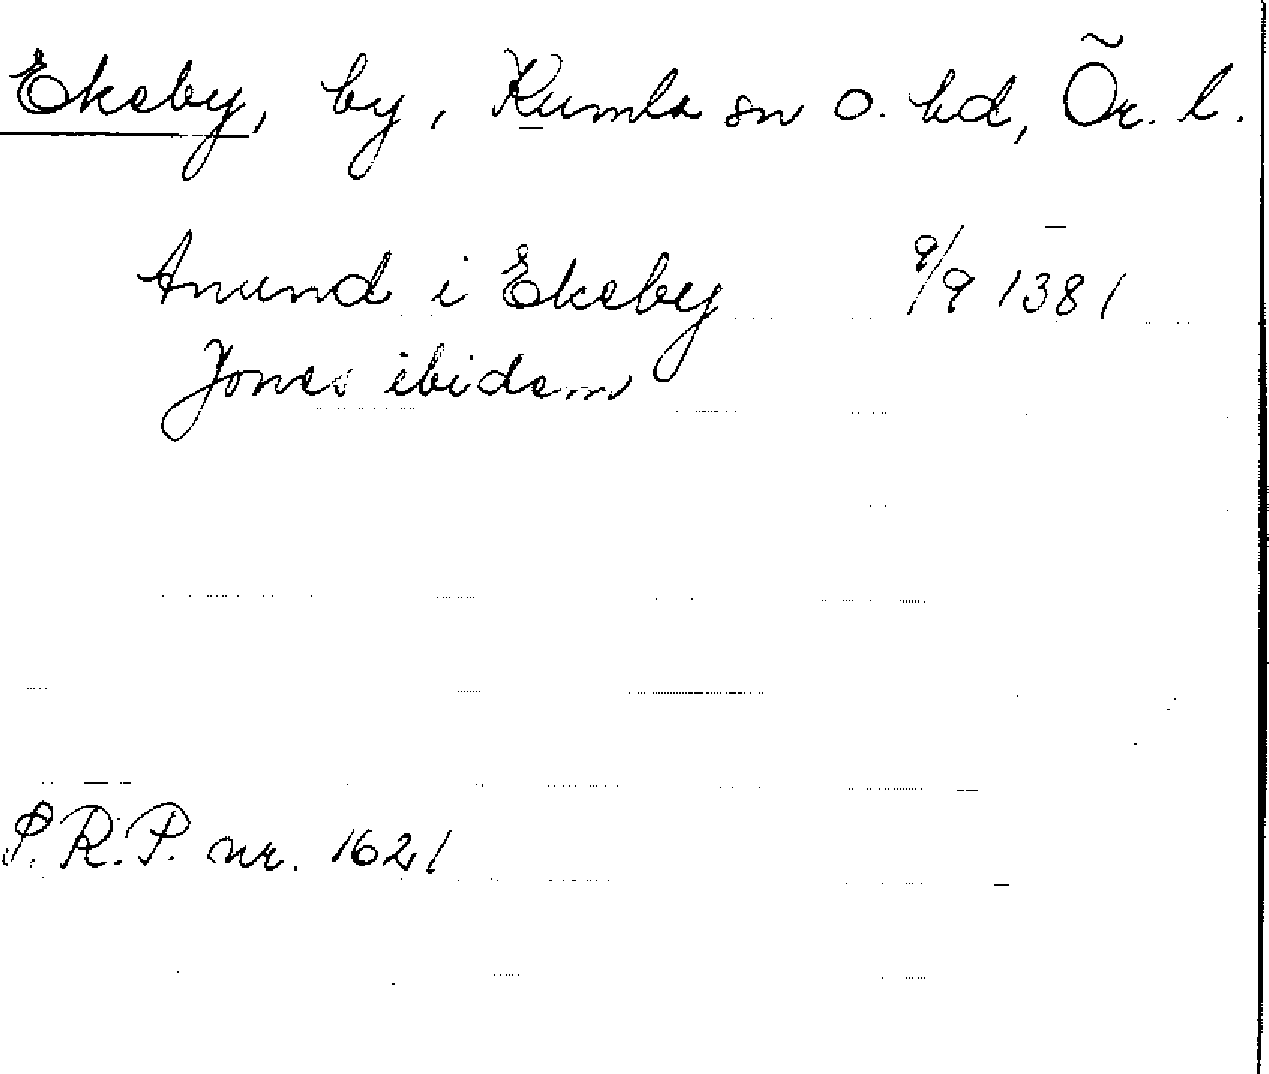 Ekeby, by, Kumla sn o. hd, Ör. l.
Anund i Ekeby 9/9 1381
Jones ibidem
P.R.P. nr. 1621